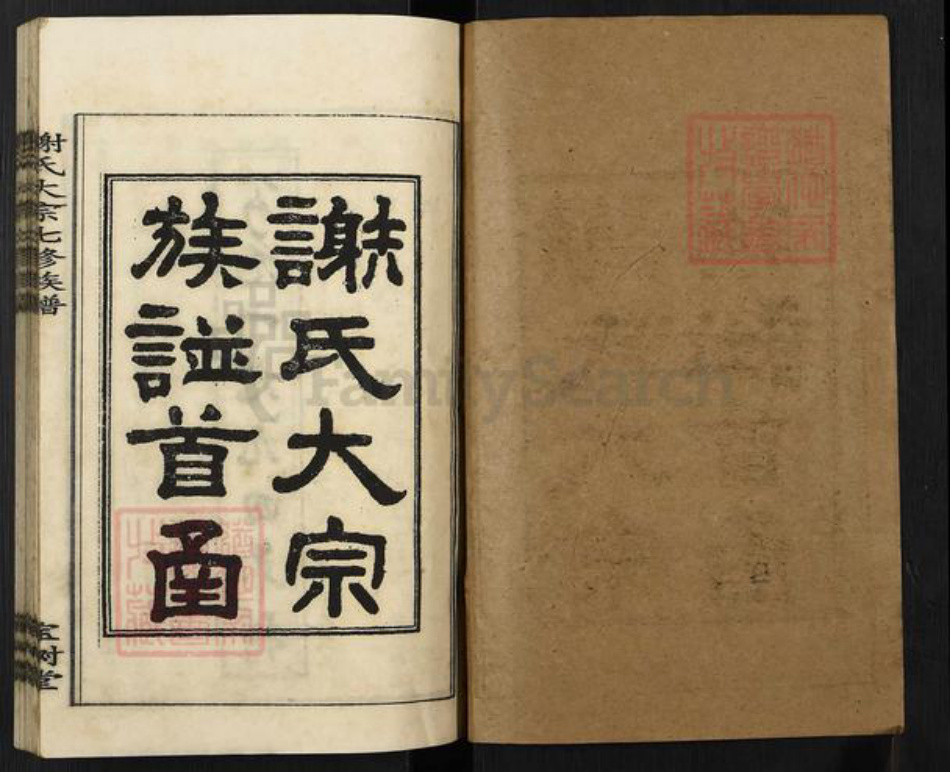 謝氏大宗
族譜首函
謝氏大宗七修族譜
宝树堂
FamilySearch